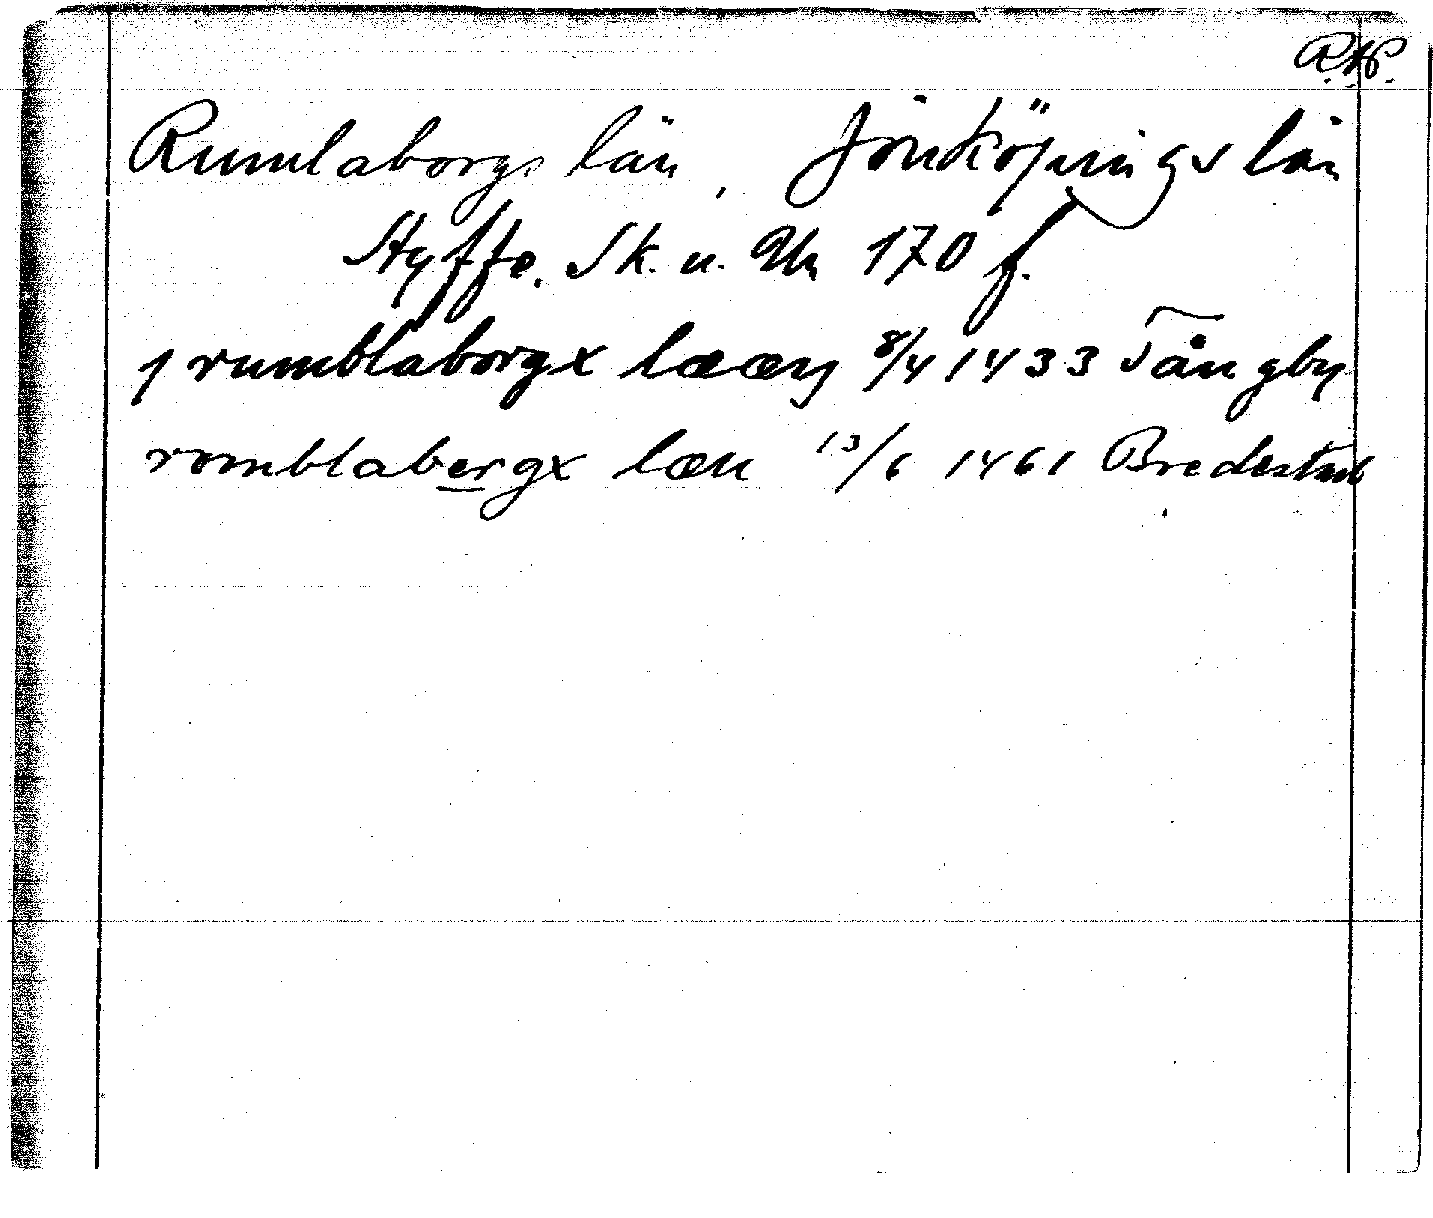 R.A.
Rumlaborgs län, Jönköpings län
Styffe. Sk. u. Un 170 f.
j rumblaborgx lææn 8/4 1433 Tångby
romblabergx læn 13/6 1461 Bredestad